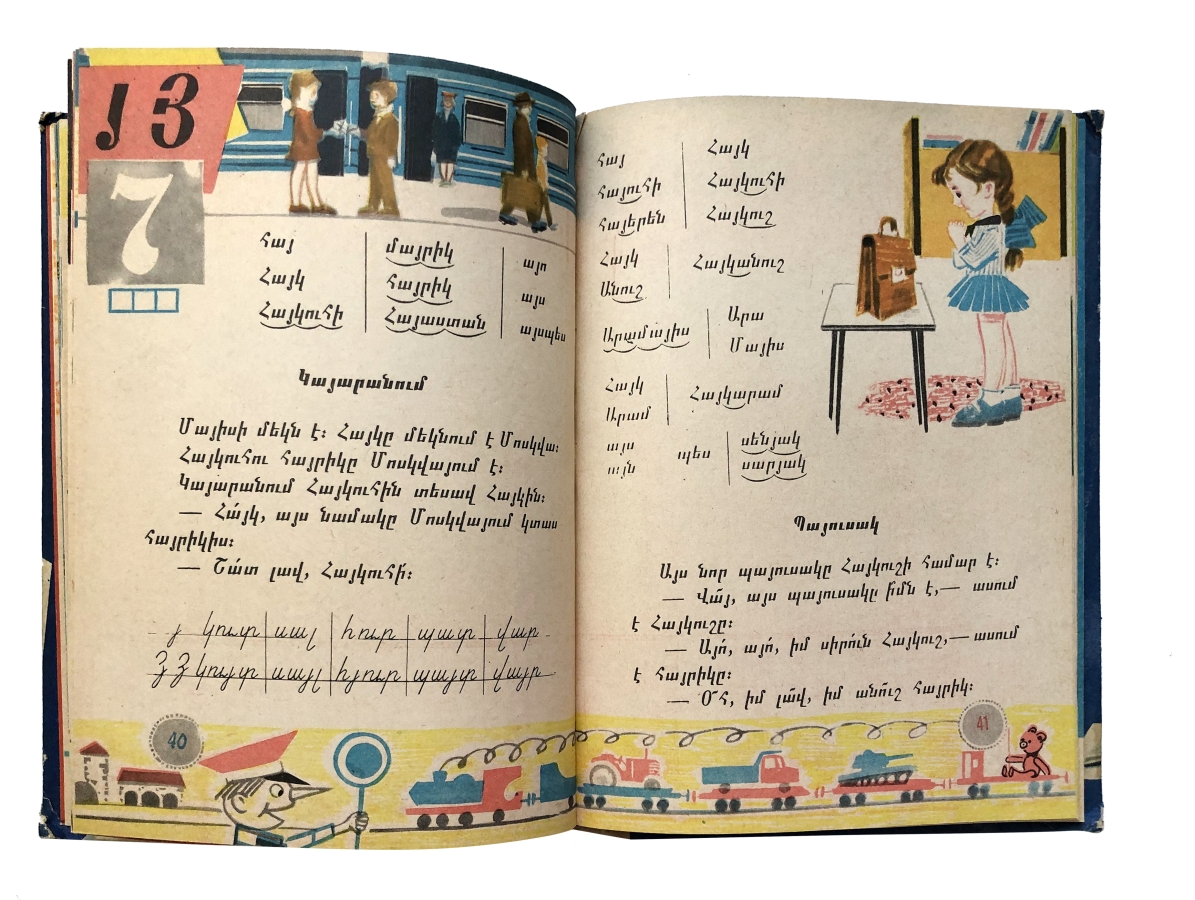 յ Յ
7
հայ մայրիկ այո
Հայկ հայրիկ այս
Հայկուհի Հայաստան այսպես
Կայարանում
Մայիսի մեկն է։ Հայկը մեկնում է Մոսկվա։
Հայկուհու հայրիկը Մոսկվայում է։
Կայարանում Հայկուհին տեսավ Հայկին։
— Հա՛յկ, այս նամակը Մոսկվայում կտաս
հայրիկիս։
— Շա՛տ լավ, Հայկուհի՛։
յ կուտ սալ հուր պատ վար
Յ Յ կույտ սայլ հյուր պայտ վայր
40
հայ Հայկ
հայուհի Հայկուհի
հայերեն Հայկուշ
Հայկ Հայկանուշ
Անուշ
Արամայիս Արա
Մայիս
Հայկ Հայկարամ
Արամ
այս պես սենյակ
այն սարյակ
Պայուսակ
Այս նոր պայուսակը Հայկուշի համար է։
— Վա՜յ, այս պայուսակը ի՞մն է,— ասում
է Հայկուշը։
— Այո՛, այո՛, իմ սիրո՛ւն Հայկուշ,— ասում
է հայրիկը։
— Օ՜հ, իմ լա՜վ, իմ անո՜ւշ հայրիկ։
41